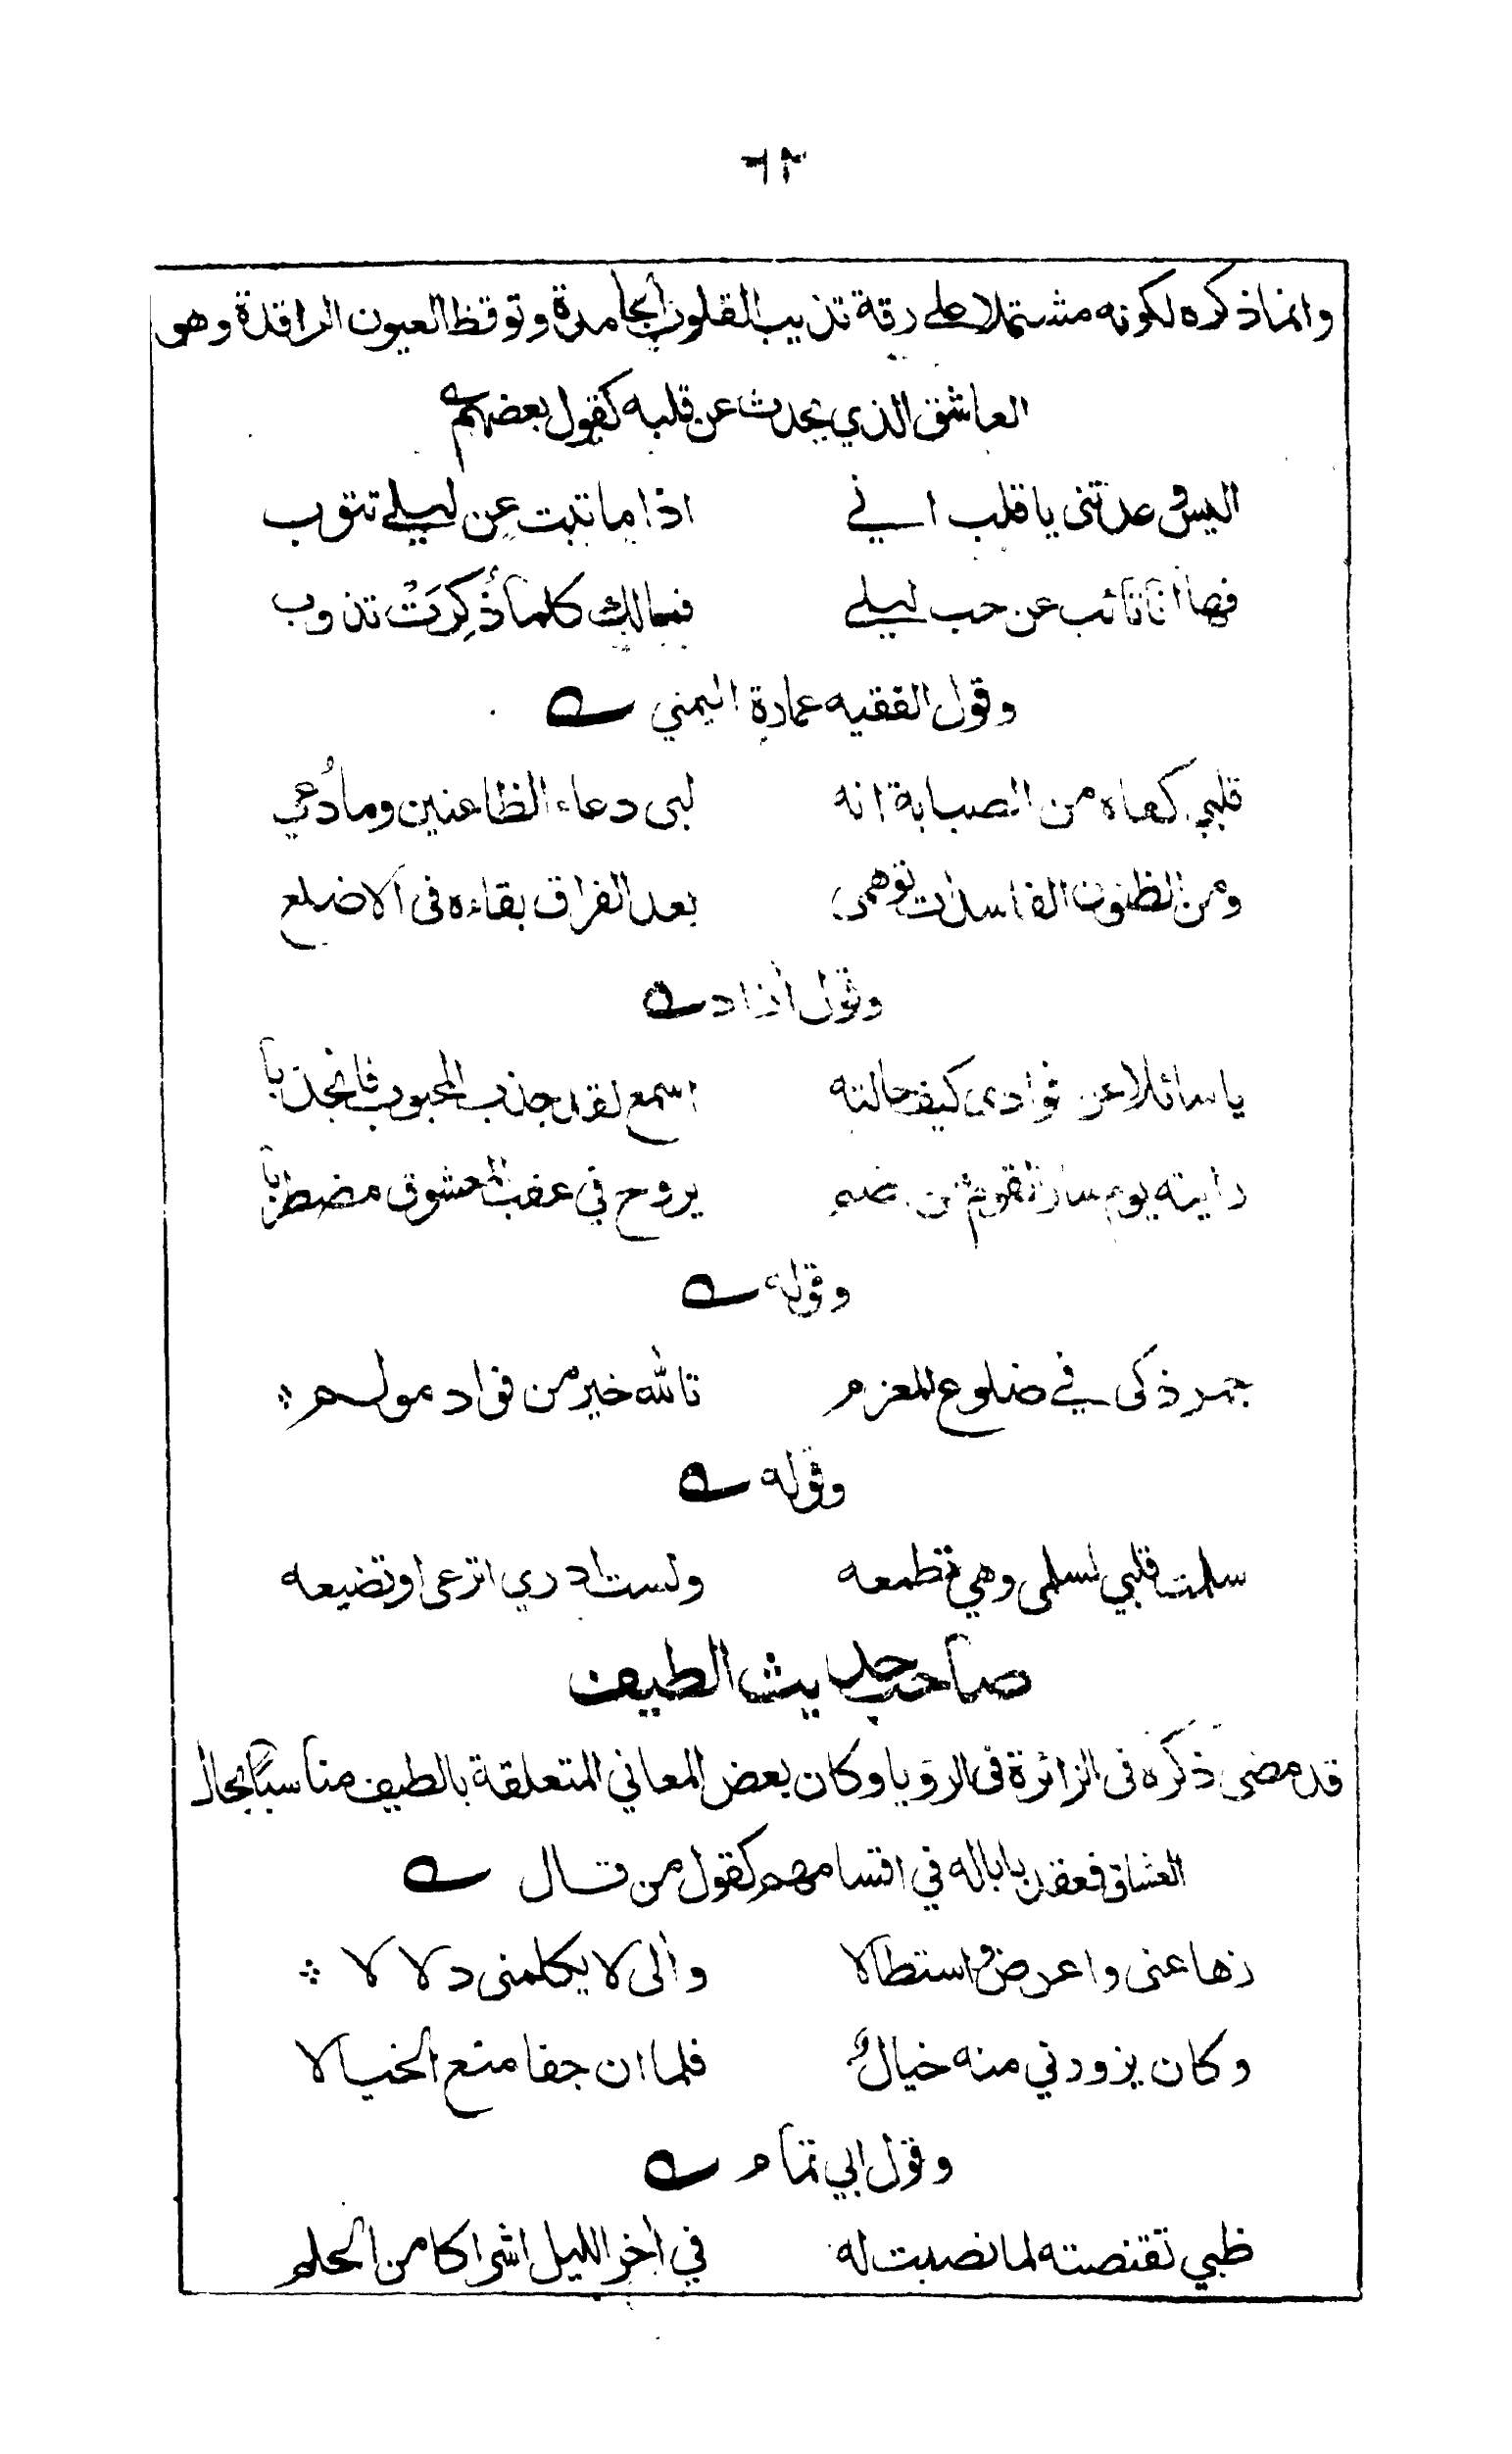 ٦٢
وانما ذكره لكونه مشتملا على رقة تذيب القلوب الجامدة وتوقظ العيون الراقدة وهو
العاشق الذي يحدث عن قلبه كقول بعضهم
اليس وعدتني يا قلب اني اذا ما تبت عن ليلى تتوب
فها انا تائب عن حب ليلى فمالك كلما ذُكِرَتْ تذوب
وقول الفقيه عمارة اليمني
قلبي كفاه من الصبابة انه لبى دعاء الظاعنين وما دُعي
ومن الظنون الفاسدات توهمى بعد الفراق بقاءه فى الاضلع
وقول آزاد
يا سائلا عن فوادى كيف حالته اسمع لقد جذب المحبوب فانجذبا
رايته يوم سار القوم من اضم يروح في عقب المعشوق مضطربا
وقوله
جمر ذكى في ضلوع المغرم تالله خير من فواد مولم
وقوله
سلمت قلبي لسلمى وهي تطمعه ولست ادري اترعى او تضيعه
صاحب حديث الطيف
قد مضى ذكره فى الزائرة فى الرويا وكان بعض المعاني المتعلقة بالطيف مناسبًا بحال
العشاق فعقدت بابا له في اقسامهم كقول من قال
زها عنى واعرض واستطالا وآلى لا يكلمنى دلالا
وكان يزورني منه خيالٌ فلما ان جفا منع الخيالا
وقول ابي تمام
ظبي تقنصته لما نصبت له في آخر الليل اشراكا من الحلم